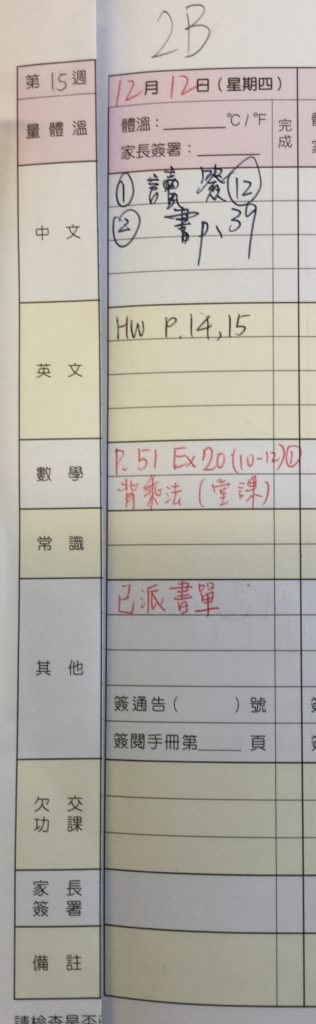 2B
第15週
12月12日(星期四)
量體溫
體溫：______ °C/°F
家長簽署：______
完成
中文
① 讀 ⑫
② 書 p.39
英文
HW P.14,15
數學
P.51 Ex 20(10-12)①
背乘法(堂課)
常識
其他
已派書單
簽通告( )號
簽閱手冊第____頁
欠交
功課
家長
簽署
備註
請檢查是否